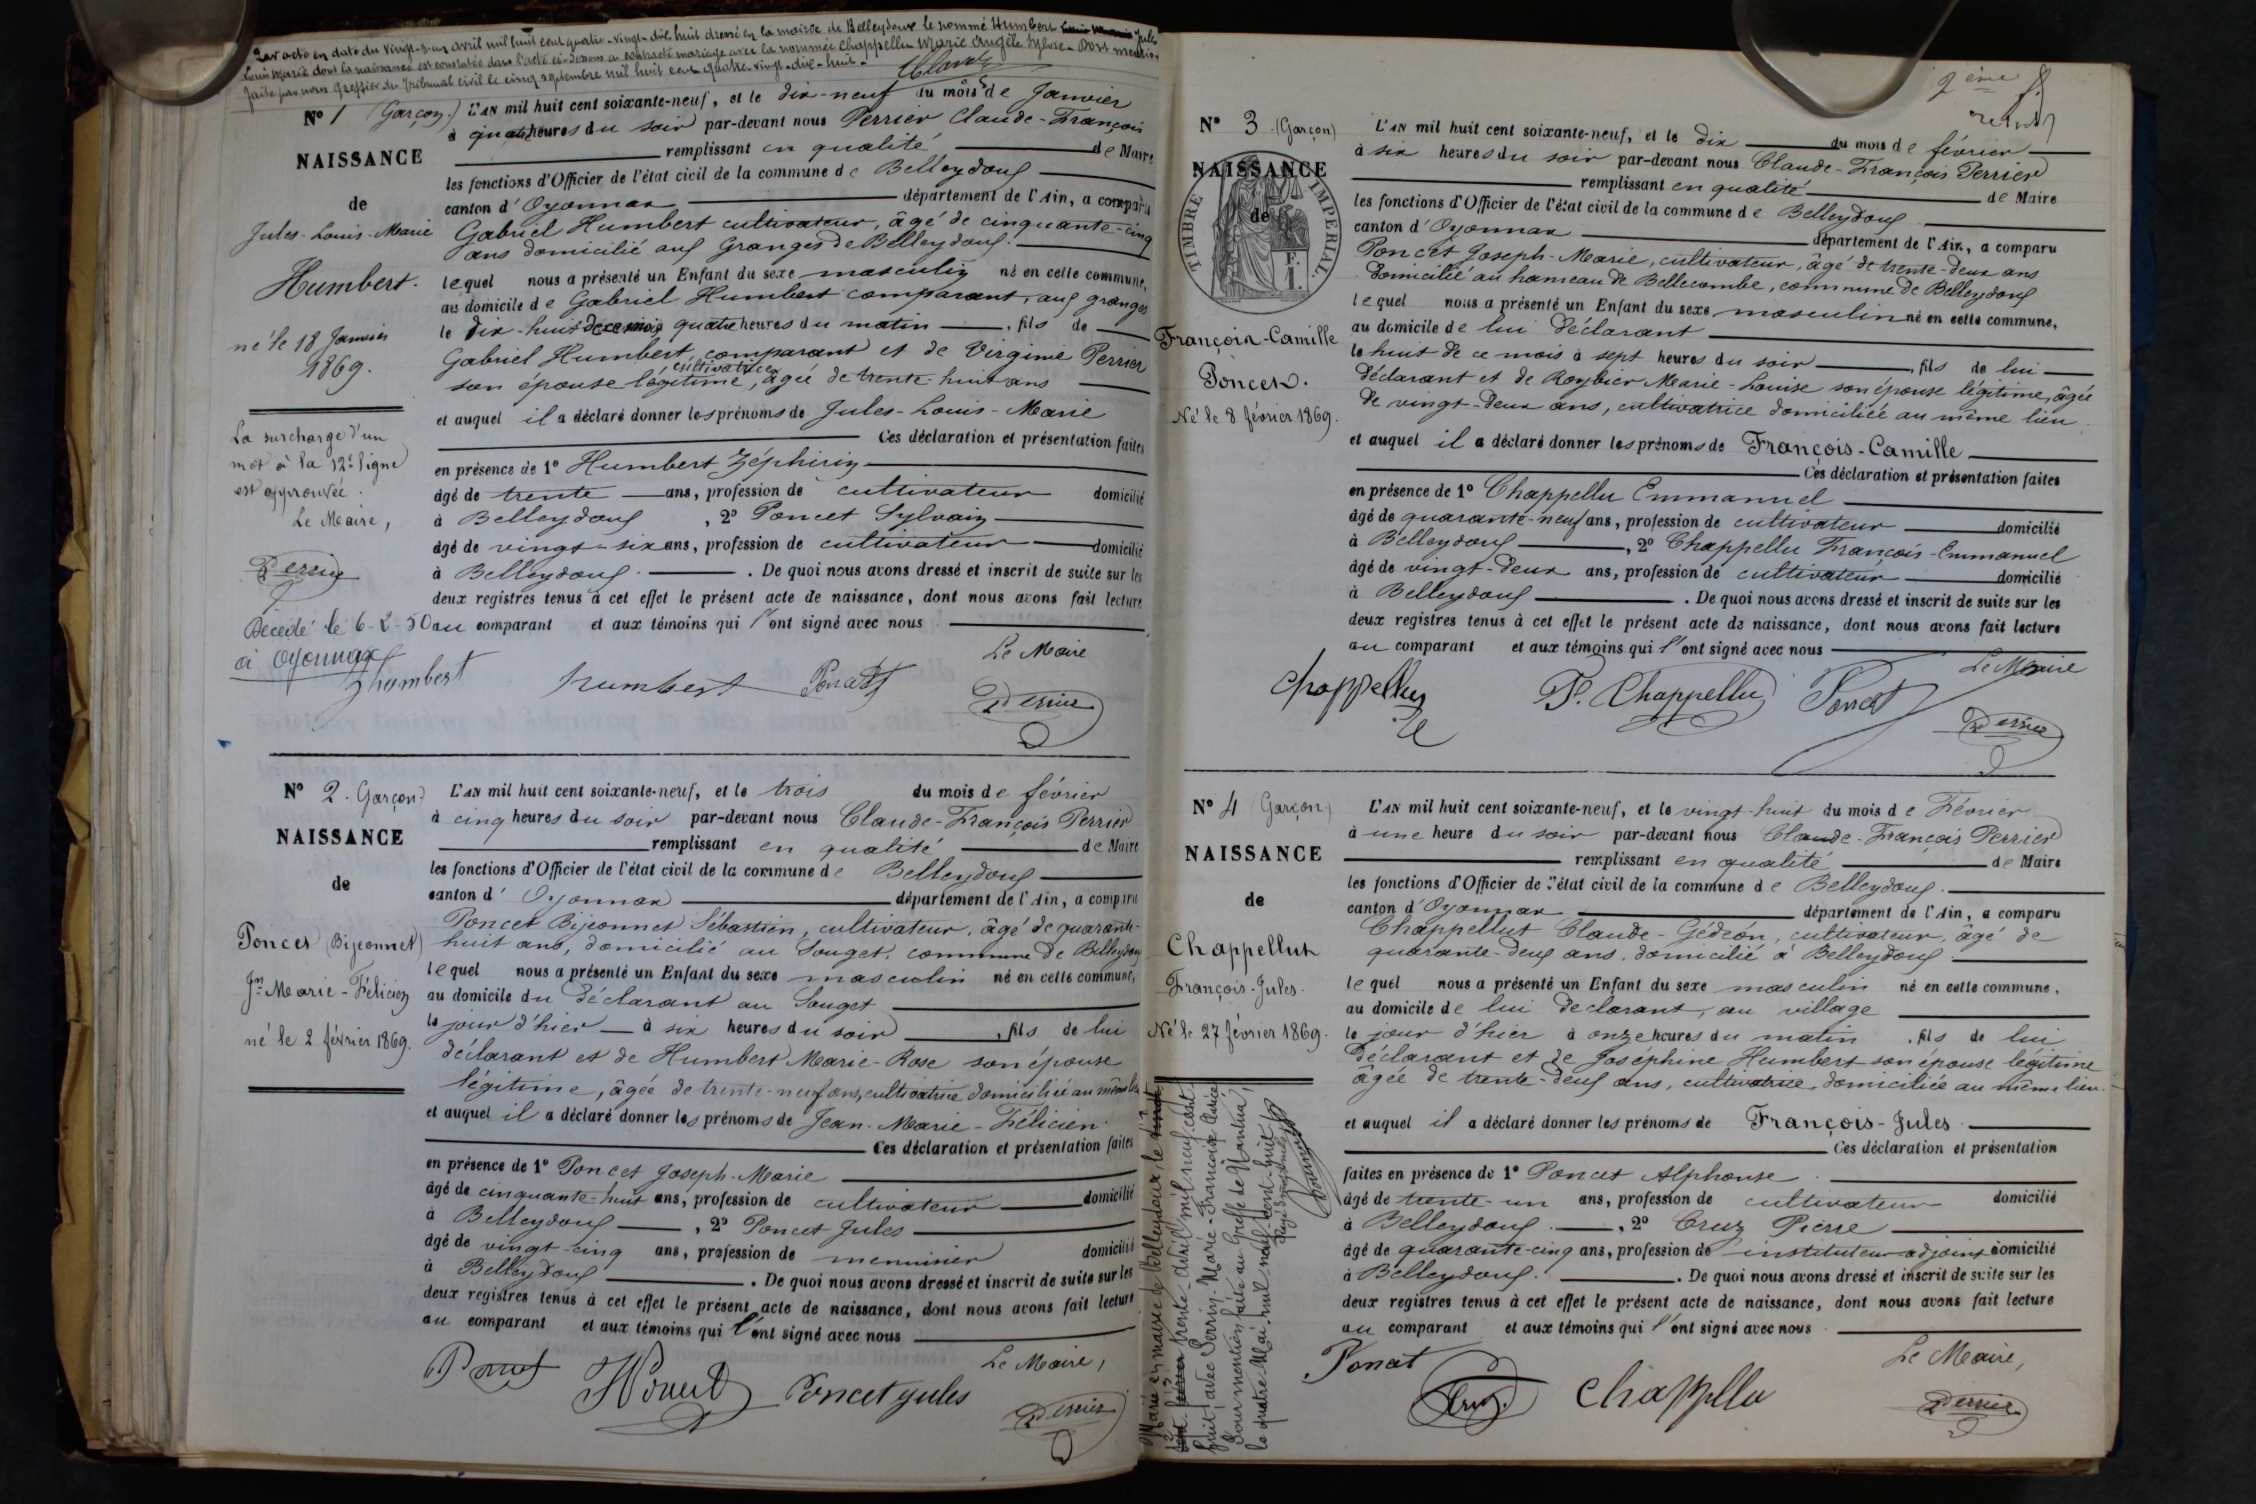 Par acte en date du vingt-un avril mil huit cent quatre-vingt-dix huit dressé en la mairie de Belleydoux le nommé Humbert Jules
Louis Marie dont la naissance est constatée dans l'acte ci-dessous a contracté mariage avec la nommée Chappellu Marie Angèle Sylvie. Dont mention
faite par nous Greffier du Tribunal civil le cinq septembre mil huit cent quatre-vingt-dix-huit.
N° 1 (Garçon.)
NAISSANCE
de
Jules-Louis-Marie
Humbert.
né le 18 Janvier
1869.
La surcharge d'un
mot à la 12e ligne
est approuvée.
Le Maire,
Perrier
Décédé le 6-2-50
à Oyonnax
L'AN mil huit cent soixante-neuf, et le dix-neuf du mois de Janvier
à quatre heures du soir par-devant nous Perrier Claude-François
remplissant en qualité de Maire
les fonctions d'Officier de l'état civil de la commune de Belleydoux
canton d'Oyonnax département de l'Ain, a comparu
Gabriel Humbert cultivateur, âgé de cinquante-cinq
ans domicilié aux Granges de Belleydoux.
lequel nous a présenté un Enfant du sexe masculin né en cette commune,
au domicile de Gabriel Humbert comparant, aux granges
le dix-huit de ce mois quatre heures du matin, fils de
Gabriel Humbert comparant et de Virginie Perrier
cultivatrice
son épouse légitime, âgée de trente-huit ans
et auquel il a déclaré donner les prénoms de Jules-Louis-Marie
Ces déclaration et présentation faites
en présence de 1° Humbert Zéphirin
âgé de trente ans, profession de cultivateur domicilié
à Belleydoux, 2° Poncet Sylvain
âgé de vingt-six ans, profession de cultivateur domicilié
à Belleydoux. De quoi nous avons dressé et inscrit de suite sur les
deux registres tenus à cet effet le présent acte de naissance, dont nous avons fait lecture
au comparant et aux témoins qui l'ont signé avec nous
Le Maire
Zhumbert humbert Poncet Perrier
N° 2. (Garçon)
NAISSANCE
de
Poncet (Bijeonnet)
Jn Marie-Félicien
né le 2 février 1869.
L'AN mil huit cent soixante-neuf, et le trois du mois de février
à cinq heures du soir par-devant nous Claude-François Perrier
remplissant en qualité de Maire
les fonctions d'Officier de l'état civil de la commune de Belleydoux
canton d'Oyonnax département de l'Ain, a comparu
Poncet Bijeonnet Sébastien, cultivateur, âgé de quarante-
huit ans, domicilié au Souget, commune de Belleydoux
lequel nous a présenté un Enfant du sexe masculin né en cette commune,
au domicile du déclarant au Souget
le jour d'hier à six heures du soir, fils de lui
déclarant et de Humbert Marie-Rose son épouse
légitime, âgée de trente-neuf ans, cultivatrice domiciliée au même lieu
et auquel il a déclaré donner les prénoms de Jean-Marie-Félicien
Ces déclaration et présentation faites
en présence de 1° Poncet Joseph-Marie
âgé de cinquante-huit ans, profession de cultivateur domicilié
à Belleydoux, 2° Poncet Jules
âgé de vingt-cinq ans, profession de menuisier domicilié
à Belleydoux. De quoi nous avons dressé et inscrit de suite sur les
deux registres tenus à cet effet le présent acte de naissance, dont nous avons fait lecture
au comparant et aux témoins qui l'ont signé avec nous
Le Maire,
Poncet Poncet jules Perrier
2ème f.
N° 3. (Garçon)
NAISSANCE
de
TIMBRE IMPÉRIAL.
F. I.
François-Camille
Poncet.
Né le 8 février 1869.
L'AN mil huit cent soixante-neuf, et le dix du mois de février
à six heures du soir par-devant nous Claude-François Perrier
remplissant en qualité de Maire
les fonctions d'Officier de l'état civil de la commune de Belleydoux
canton d'Oyonnax département de l'Ain, a comparu
Poncet Joseph-Marie, cultivateur, âgé de trente-deux ans
domicilié au hameau de Bellecombe, commune de Belleydoux
lequel nous a présenté un Enfant du sexe masculin né en cette commune,
au domicile de lui déclarant
le huit de ce mois à sept heures du soir, fils de lui
déclarant et de Roybier Marie-Louise son épouse légitime, âgée
de vingt-deux ans, cultivatrice domiciliée au même lieu.
et auquel il a déclaré donner les prénoms de François-Camille
Ces déclaration et présentation faites
en présence de 1° Chappellu Emmanuel
âgé de quarante-neuf ans, profession de cultivateur domicilié
à Belleydoux, 2° Chappellu François-Emmanuel
âgé de vingt-deux ans, profession de cultivateur domicilié
à Belleydoux. De quoi nous avons dressé et inscrit de suite sur les
deux registres tenus à cet effet le présent acte de naissance, dont nous avons fait lecture
au comparant et aux témoins qui l'ont signé avec nous
Le Maire
Chappellu F. Chappellu Poncet Perrier
N° 4 (Garçon)
NAISSANCE
de
Chappellut
François-Jules.
Né le 27 février 1869.
Marié en mairie de Belleydoux, le
trente avril mil neuf cent
huit, avec Perrin Marie-Françoise
Pour mention faite au Greffe de Nantua,
le quatre Mai mil neuf cent huit
L'AN mil huit cent soixante-neuf, et le vingt-huit du mois de Février
à une heure du soir par-devant nous Claude-François Perrier
remplissant en qualité de Maire
les fonctions d'Officier de l'état civil de la commune de Belleydoux.
canton d'Oyonnax département de l'Ain, a comparu
Chappellut Claude-Gédéon, cultivateur, âgé de
quarante-deux ans, domicilié à Belleydoux.
lequel nous a présenté un Enfant du sexe masculin né en cette commune,
au domicile de lui déclarant, au village
le jour d'hier à onze heures du matin, fils de lui
déclarant et de Joséphine Humbert son épouse légitime
âgée de trente-deux ans, cultivatrice, domiciliée au même lieu.
et auquel il a déclaré donner les prénoms de François-Jules.
Ces déclaration et présentation
faites en présence de 1° Poncet Alphonse
âgé de trente-un ans, profession de cultivateur domicilié
à Belleydoux, 2° Cruz Pierre
âgé de quarante-cinq ans, profession de instituteur adjoint domicilié
à Belleydoux. De quoi nous avons dressé et inscrit de suite sur les
deux registres tenus à cet effet le présent acte de naissance, dont nous avons fait lecture
au comparant et aux témoins qui l'ont signé avec nous.
Le Maire,
Poncet Cruz. Chappellu Perrier